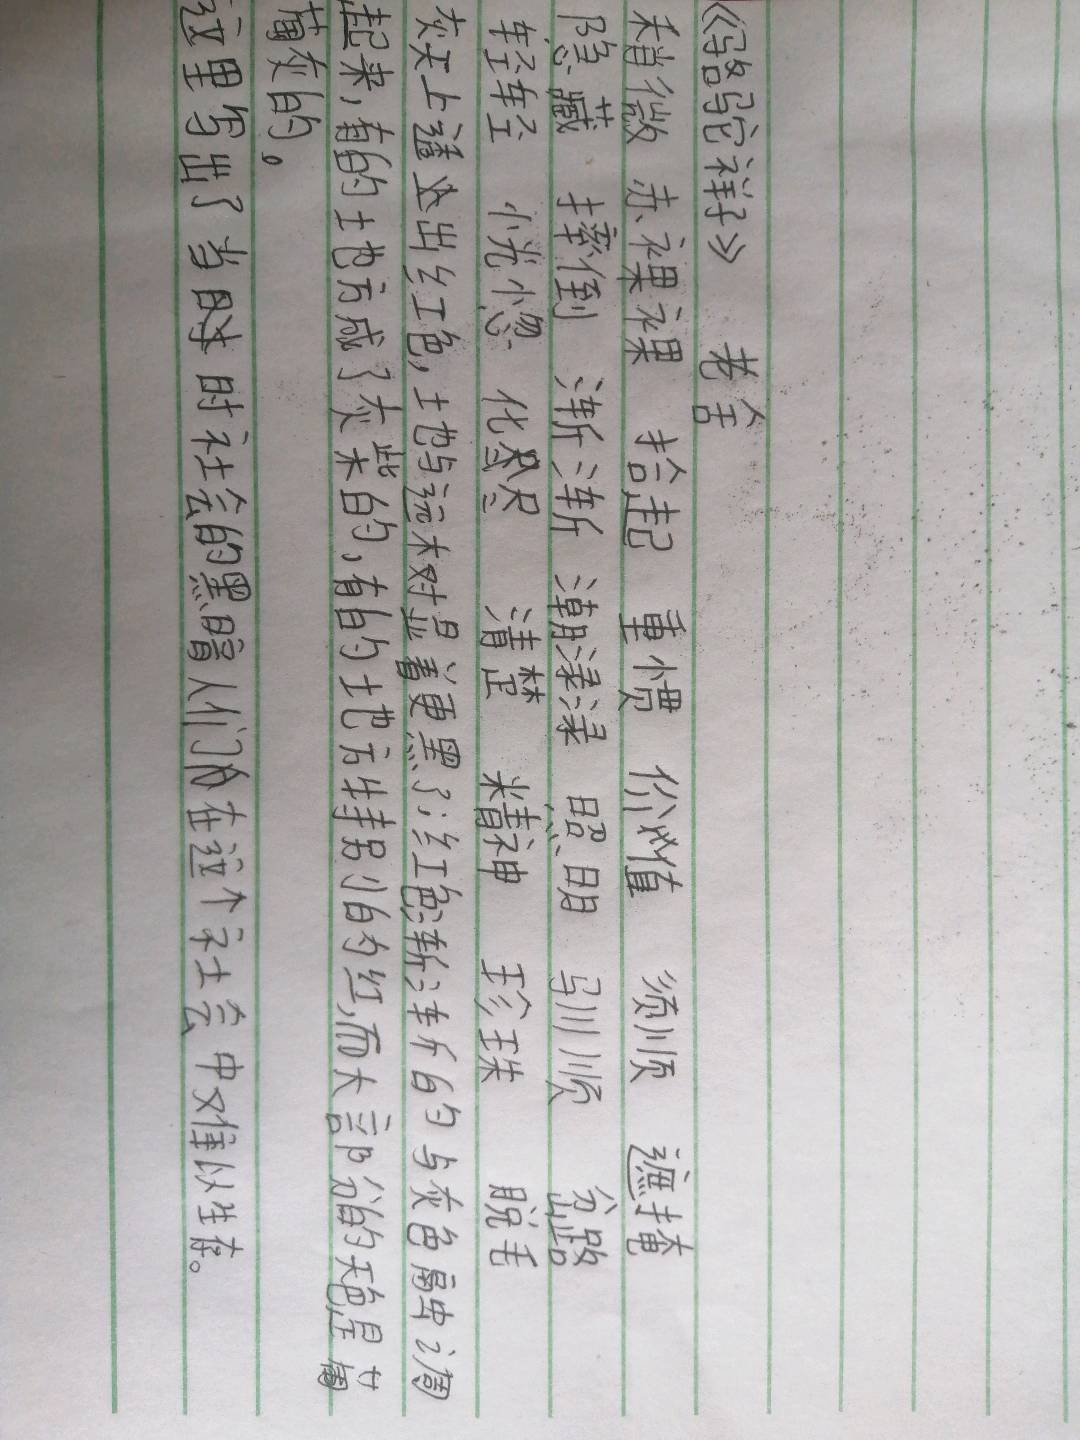 《骆驼祥子》 老舍
稍微 赤裸裸 拾起 重惯 价值 须顺 遮掩
隐藏 摔倒 渐渐 潮渌渌 照明 马川顺 岔路
轻轻 恍惚 化 清楚 精神 珍珠 脱毛
灰天上透出红色,土地与远树对显着更黑了;红色渐渐的与灰色融调
起来,有的土地方成了灰紫的,有的土地方特别的红,而大部份的天色是葡
萄灰的。
这里写出了当时时社会的黑暗人们在这个社会中难以生存。